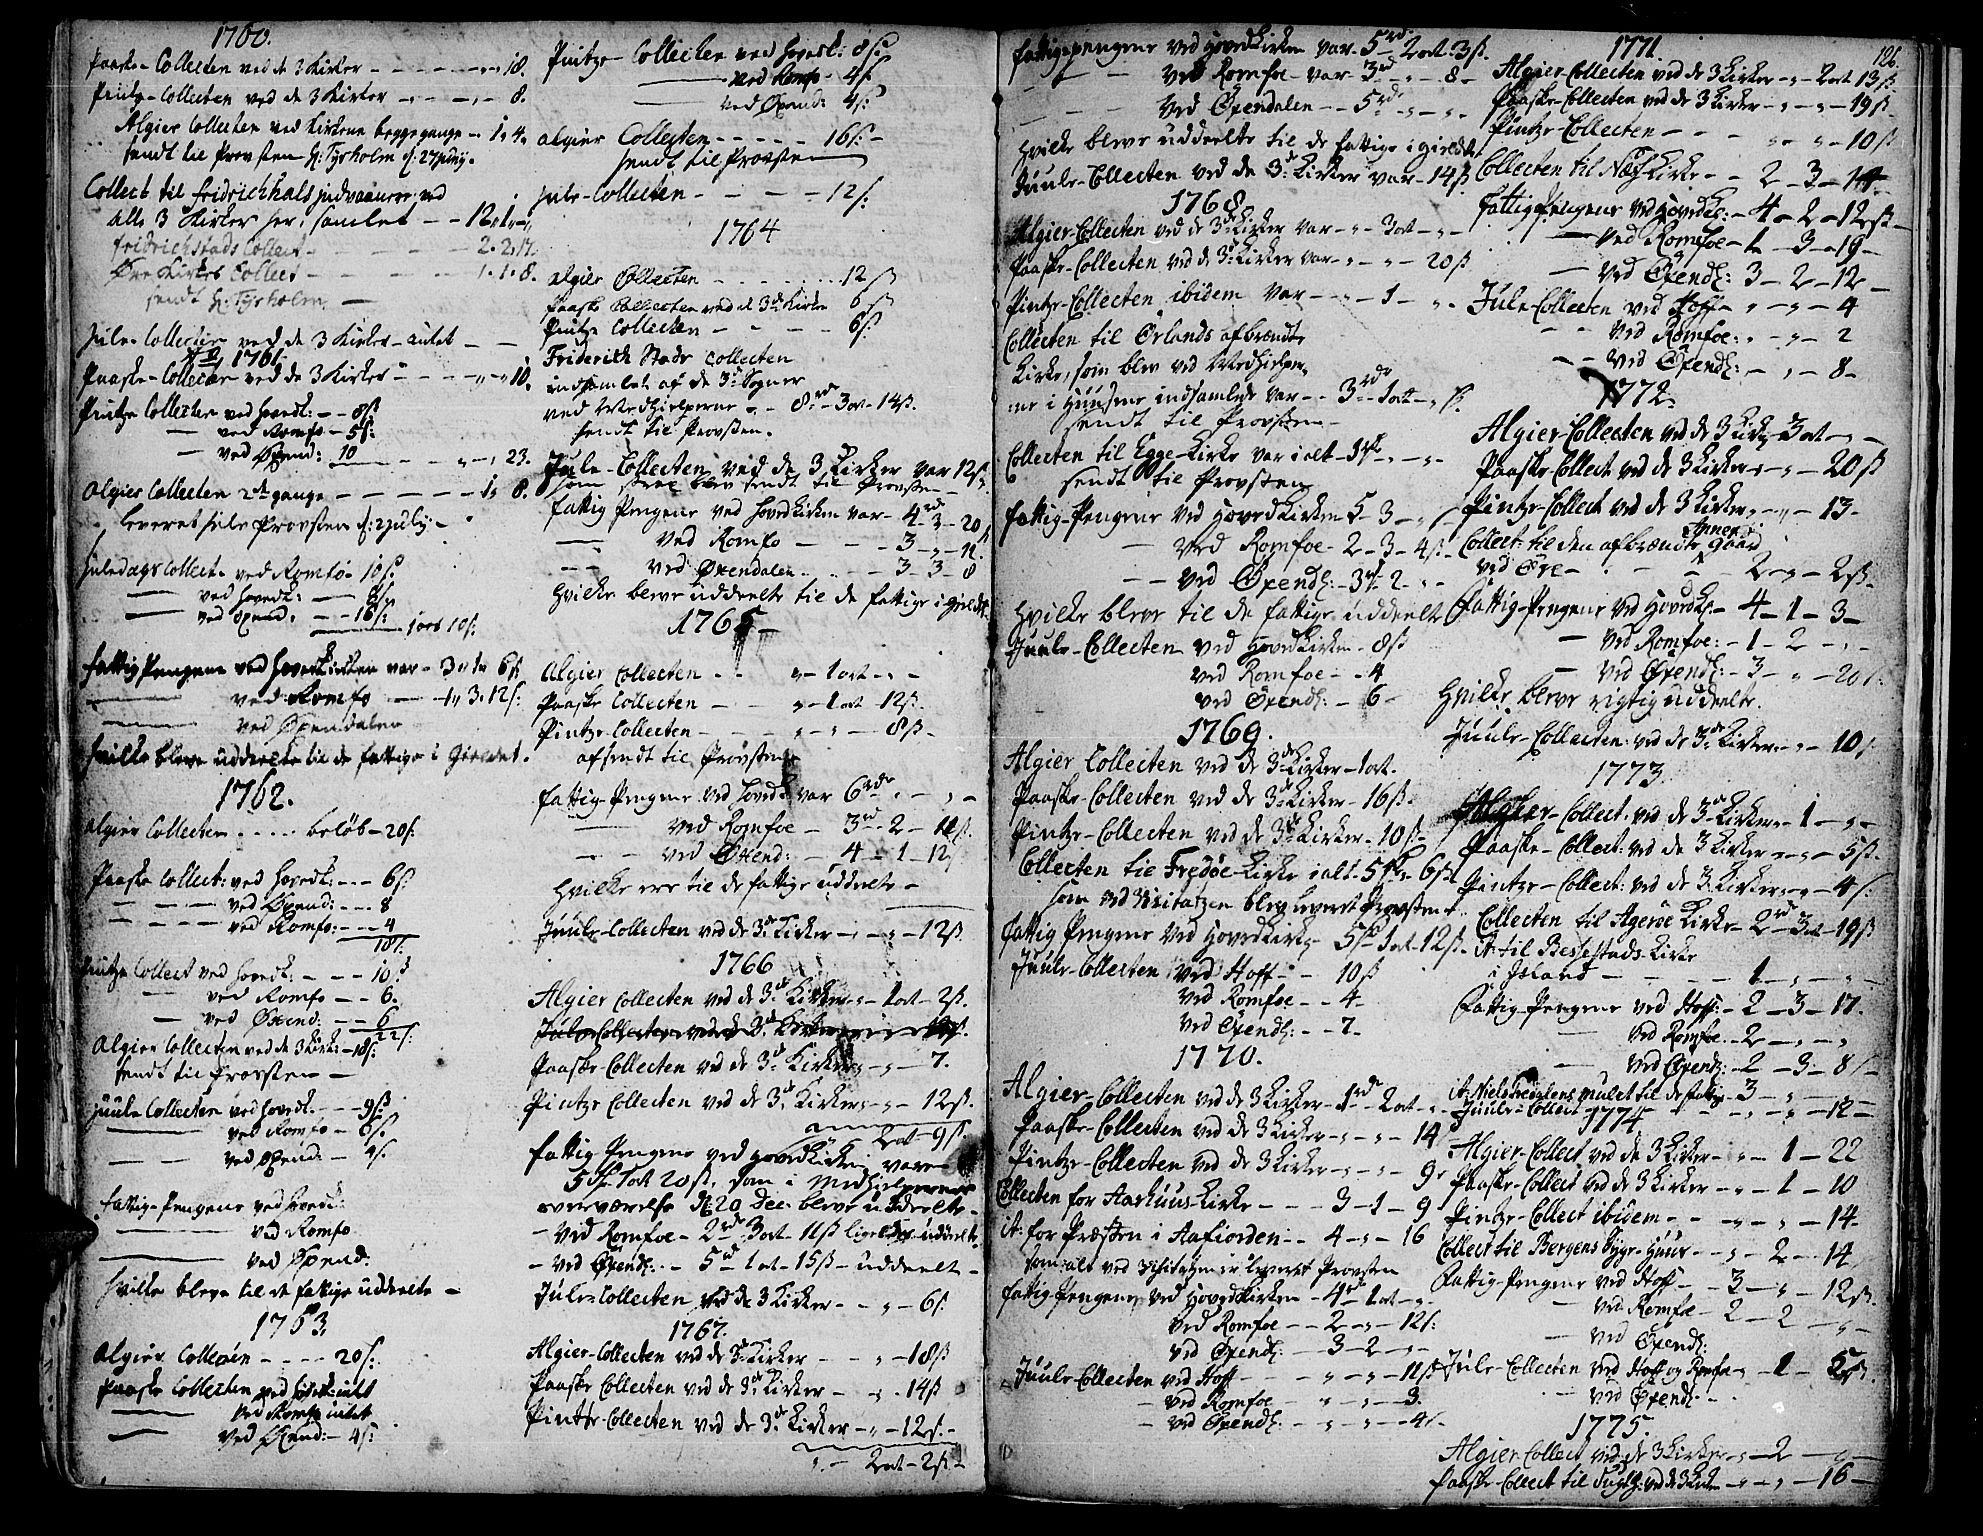 1760.
Paaske-Collecten ved de 3 Kirker - - - - - „ - 18.
Pintze-Collecten ved de 3 Kirker - „ - - „ - 8.
Algier Collecten ved Kirkene begge gange - 1. 4.
sendt til Provsten H: Tyrholm d. 27 juny.
Collect til Fridrichhals indvaanere ved
alle 3 Kirker her, samlet - - 12. 1. „
Fridrichstads Collect - - - - 2. 2. 17.
Øre Kirkes Collect - - - - 1. 1. 8.
sendt H: Tyrholm -
Jule-Collecten ved de 3 Kirker - intet - -
1761.
Paaske-Collecten ved de 3 Kirker - - - „ - 10.
Pintze Collecten ved Hovedk: - - 8ß
- ved Romfo - 5ß:
- ved Øxend: 10 - - „ - 23.
Algier Collecten 2de gange - - - - - 1. 8.
leveret hele Provsten d: 2 july. -
Juledags Collect. ved Romfo - 10ß
- ved Hovedk: - 8ß
- ved Øxend. - 16ß:
1 ort 10ß.
Fattig Pengene ved Hovedkirken var - 3. 1. 6ß
- ved Romfo - 1. 3. 12ß:
- ved Øxendalen
hvilke bleve uddeelte til de fattige i Gieldet.
1762.
Algier Collecten - - - - beløb - 20ß.
Paaske Collect: ved Hovedk: - - - 6ß
- - - ved Øxend: - - - 8
- - - ved Romfo: - - - 4
18ß.
Pintze Collect ved Hovedk: - - - 10ß
- ved Romfo - - 6.
- ved Øxend: - - 6
22ß:
Algier Collecten ved de 3 Kirk: - 18ß:
sendt til Provsten -
Juule Collecten ved Hovedk. - - 9ß
- ved Romfo - 6ß.
- ved Øxend: - 4ß.
Fattig-Pengene ved Hovedk:
- ved Romfo
- ved Øxend.
hvilke bleve til de fattige uddeelte -
1763.
Algier Collecten - - - - 20ß.
Paaske Collecten ved Hovedk: intet
- ved Romfo intet
- ved Øxend: - 4ß:
Pintze-Collecten ved Hovedk: 8ß:
- ved Romfo - 4ß
- ved Øxend: 4ß:
Algier Collecten - - - - - 16ß: -
sendt til Provsten
Jule-Collecten - - - - 12ß:
1764
Algier Collecten - - - - - - 12ß
Paaske Collecten ved de 3de Kirke 6ß
Pintze Collecten - - - - 6ß.
Friderich Stads Collecten
indsamlet af de 3de Sogner
ved Medhielperne - - 8rd - 3ort - 14ß.
sendt til Provsten.
Juule-Collecten ved de 3 Kirker var 12ß.
som strax blev sendt til Provsten
Fattig Pengene ved Hovedkirken var - 4rd - 3 - 20ß
- ved Romfo - - 3 - „ - 12.
- - ved Øxendalen - - - 3 - 3 - 8
hvilke bleve uddeelte til de fattige i gieldet
1765
Algier Collecten - - „ - 1ort - „ -
Paaske Collecten - - „ - 1ort - 12ß.
Pintze-Collecten - - - „ - „ - 8ß -
afsendt til Provsten
Fattig-Pengene ved Hovedk: var 6rd - „ - „ -
- ved Romfoe - 3rd - 2 - 12ß.
- - ved Øxend: - 4 - 1 - 12
hvilke ere til de fattige uddeelte -
Juule-Collecten ved de 3de Kirker - „ - „ - 12ß
1766
Algier Collecten ved de 3de Kirker - „ - 1ort - 2ß.
Paaske Collecten ved de 3de Kirker „ - „ - 7.
Pintze Collecten ved de 3de Kirker - „ - 12ß.
2ort - 9ß.
Fattig Pengene ved Hovedkirken vare -
5rd 1ort 20ß, som i Medhielpernes
overværelse d. 20 Dec. bleve uddeelte.
- ved Romfoe - 2rd 3ort - 11ß ligeledes uddeelt.
- ved Øxend: - 5rd - 1ort - 15ß - uddeelt -
Jule-Collecten ved de 3 Kirker - - „ - 6ß.
1767.
Algier-Collecten ved de 3de Kirker - - „ - 18ß
Paaske Collecten ved de 3de Kirker - „ - 14ß
Pintze-Collecten ved de 3de Kirker - „ - 12ß. -
„ - 2ort - 2ß -
Fattigpengene ved Hovedkirken var 5rd 2ort. 3ß.
- - ved Romfoe - var 3rd - „ - 8 -
- - ved Øxendalen - - 5rd - „ - „ -
hvilke bleve uddeelte til de fattige i gieldet
Juule-Collecten ved de 3de Kirker var - 14ß
1768.
Algier-Collecten ved de 3de Kirker var - „ - 3ort - „ -
Paaske-Collecten ved de 3de Kirker var - „ - „ - 20ß
Pintze-Collecten ibidem var - - „ - 1 - „ -
Collecten til Ørlands afbrændte
Kirke, som blev ved Medhielper-
ne i Huusene indsamlede var - - 3rd - 1ort - „ ß.
sendt til Provsten -
Collecten til Egge-Kirke var i alt - 1rd - „ - „ -
sendt til Provsten
Fattig-Pengene ved Hovedkirken 5 - 3 - „
- ved Romfoe - 2 - 3 - 4ß -
- - ved Øxend: - 3rd - 2 - „ -
hvilke bleve til de fattige uddeelte
Juule-Collecten ved Hovedkirken - 8ß
ved Romfoe - - 4
ved Øxend: - 6 -
1769.
Algier Collecten ved de 3de Kirker - 1ort.
Paaske-Collecten ved de 3de Kirker - 16ß.
Pintze-Collecten ved de 3de Kirker - 10ß -
Collecten til Fredøe-Kirke i alt - 5rd - 6ß
som ved Visitatzen blev leveret Provsten
Fattig Pengene ved Hovedkirk: 5rd - 1ort - 12ß -
Juule-Collecten ved Hoff - - 10ß
ved Romfoe - - 4 -
ved Øxend: - - 7 -
1770.
Algier-Collecten ved de 3 Kirker - 1rd - 2ort - „ -
Paaske-Collecten ved de 3 Kirker - „ - „ - 14
Pintze-Collecten ved de 3 Kirker - „ - „ - 9
Collecten for Aarhuus-Kirke - - - 3 - 1 - 9
it: for Præsten i Aafiorden - - 4 - „ - 16
som alt ved Visitatzen er leveret Provsten
Fattig Pengene ved Hovedkirken - 4rd - 1ort - „
ved Romfoe - - 2 - „ - 12ß:
ved Øxend: - 3 - 2 - „ -
Juule-Collecten ved Hoff - - - „ - „ - 11ß
- ved Romfoe - „ - „ - 3.
- ved Øxend: - - „ - „ - 4ß -
1771.
126.
Algier-Collecten ved de 3 Kirker - „ - 2ort 13ß:
Paaske-Collecten ved de 3 Kirker - „ - „ - 19ß
Pintze-Collecten - - - „ - „ - 10ß
Collecten til Næss-Kirke - - 2 - 3 - 14 -
Fattigpengene ved Hovedk: - 4 - 2 - 12ß -
- ved Romfoe - 1 - 3 - 19 -
- ved Øxend: 3 - 2 - 12 -
Jule-Collecten ved Hoff - „ - „ - 4
- - ved Romfoe: - „ - 2
- - ved Øxend: - „ - 8 -
1772.
Algier-Collecten ved de 3 Kirk: 3ort - „ -
Paaske-Collect ved de 3 Kirker - „ - „ - 20ß
Pintze-Collect ved de 3 Kirker - „ - 13 -
Collect: til den afbrændte gaard
ved Øre - - - - 2 - „ - 2ß -
Fattig-Pengene ved Hovedk: - 4 - 1 - 3 -
- ved Romfoe: - 1 - 2 - „ -
- ved Øxend: - 3 - „ - 20ß.
hvilke bleve rigtig uddeelte.
Juule-Collecten: ved de 3de Kirker - „ - 10ß
1773
Algier-Collect: ved de 3de Kirker - 1 - „ -
Paaske-Collect: ved de 3 Kirker - „ - „ - 5ß.
Pintze-Collect: ved de 3 Kirker - „ - 4ß.
Collecten til Agerøe Kirke - 2rd - 3ort - 19ß
it. til Bessestads-Kirke
i Island - - - - 1 - „ - „
Fattig-Pengene ved Hoff: - 2 - 3 - 17.
- ved Romfoe - 2 - „ - „
- ved Øxend: - 2 - 3 - 8ß -
mulct til de fattige 3 - „ -
Juule-Collect - - „ - „ - 12 -
1774
Algier-Collect ved de 3 Kirker - „ - 1 - 22
Paaske-Collect ved de 3 Kirker - „ - 1 - 10
Pintze-Collect ibidem - - „ - „ - 14 -
Collect til Bergens Syge-Huus - - „ - 2 - 14
Fattig-Pengene ved Hoff - - 3 - „ - 12ß.
- ved Romfoe - 2 - 2 - „ -
- ved Øxend:
Jule-Collecten ved Hoff og Romfoe - 1 -
- ved Øxend: - -
1775.
Algier-Collect ved de 3 Kirker - „ - 2 - „ -
Paaske-Collect til ved de 3 Kirker - „ - „ - 16 -